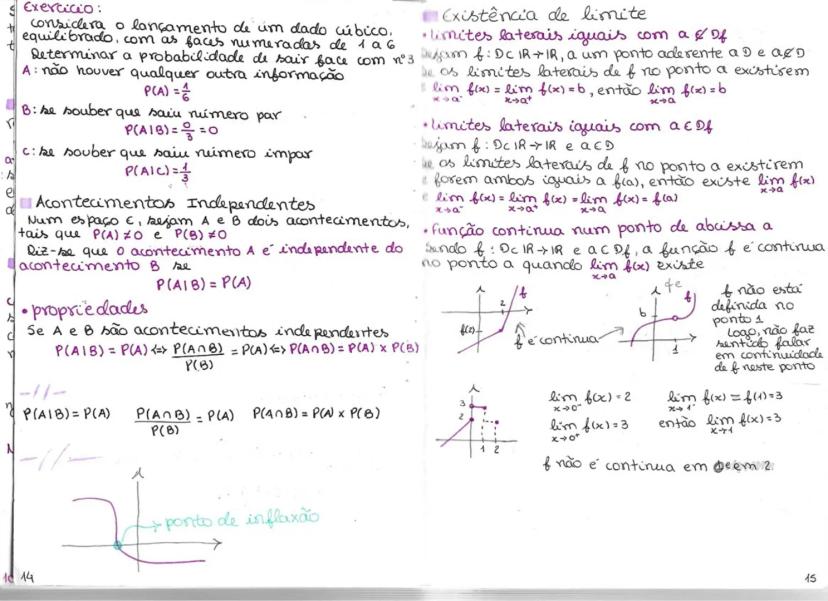 Exercício:
considera o lançamento de um dado cúbico,
equilibrado, com as faces numeradas de 1 a 6
Determinar a probabilidade de sair face com nº3
A: não houver qualquer outra informação
P(A) = 1/6
B: se souber que saiu número par
P(A|B) = 0/3 = 0
C: se souber que saiu número impar
P(A|C) = 1/3
Acontecimentos Independentes
Num espaço E, sejam A e B dois acontecimentos,
tais que P(A) ≠ 0 e P(B) ≠ 0
Diz-se que o acontecimento A é independente do
acontecimento B se
P(A|B) = P(A)
• propriedades
Se A e B são acontecimentos independentes
P(A|B) = P(A) <=> P(A∩B)/P(B) = P(A) <=> P(A∩B) = P(A) x P(B)
-//-
P(A|B) = P(A) P(A∩B)/P(B) = P(A) P(A∩B) = P(A) x P(B)
-//-
ponto de inflaxão
14
Existência de limite
• limites laterais iguais com a ∉ Df
Sejam f: D⊂IR→IR, a um ponto aderente a D e a∉D
se os limites laterais de f no ponto a existirem
e lim x→a⁻ f(x) = lim x→a⁺ f(x) = b, então lim x→a f(x) = b
• limites laterais iguais com a ∈ Df
Sejam f: D⊂IR→IR e a∈D
se os limites laterais de f no ponto a existirem
e forem ambos iguais a f(a), então existe lim x→a f(x)
e lim x→a⁻ f(x) = lim x→a⁺ f(x) = lim x→a f(x) = f(a)
• Função contínua num ponto de abcissa a
Sendo f: D⊂IR→IR e a ⊂ Df, a função f é contínua
no ponto a quando lim x→a f(x) existe
f
2
f(2)
f é contínua
b
f
1
f não está
definida no
ponto 1
Logo, não faz
sentido falar
em continuidade
de f neste ponto
3
2
1 2
lim x→0⁻ f(x) = 2 lim x→1 f(x) = f(1) = 3
lim x→0⁺ f(x) = 3 então lim x→1 f(x) = 3
f não é contínua em 0 e em 2
15